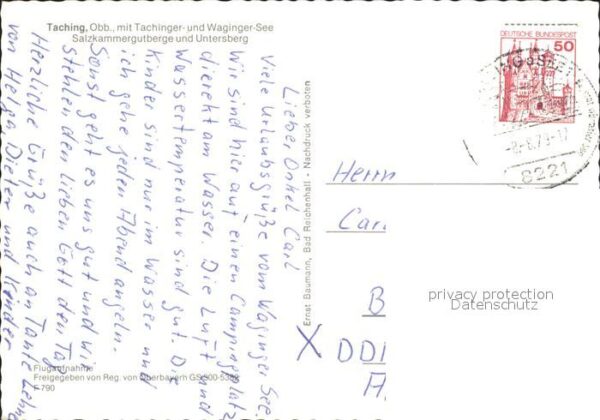 Taching, Obb., mit Tachinger- und Waginger-See
Salzkammergutberge und Untersberg
Lieber Onkel Carl
Viele Urlaubsgrüße vom Waginger See
Wir sind hier auf einen Campingplatz
dierekt am Wasser. Die Luft und
Wassertemperatur sind gut. Die
Kinder sind nur im Wasser und
ich gehe jeden Abend angeln.
Sonst geht es uns gut und wir
stehlen den lieben Gott den Tag
Herzliche Grüße auch an Tante Lehne
von Helga Dieter und Kinder
Flugaufnahme
Freigegeben von Reg. von Oberbayern GS 300-
F 790
Ernst Baumann, Bad Reichenhall - Nachdruck verboten
DEUTSCHE BUNDESPOST
50
8221
Herrn
Car
B
X DD
A
privacy protection
Datenschutz